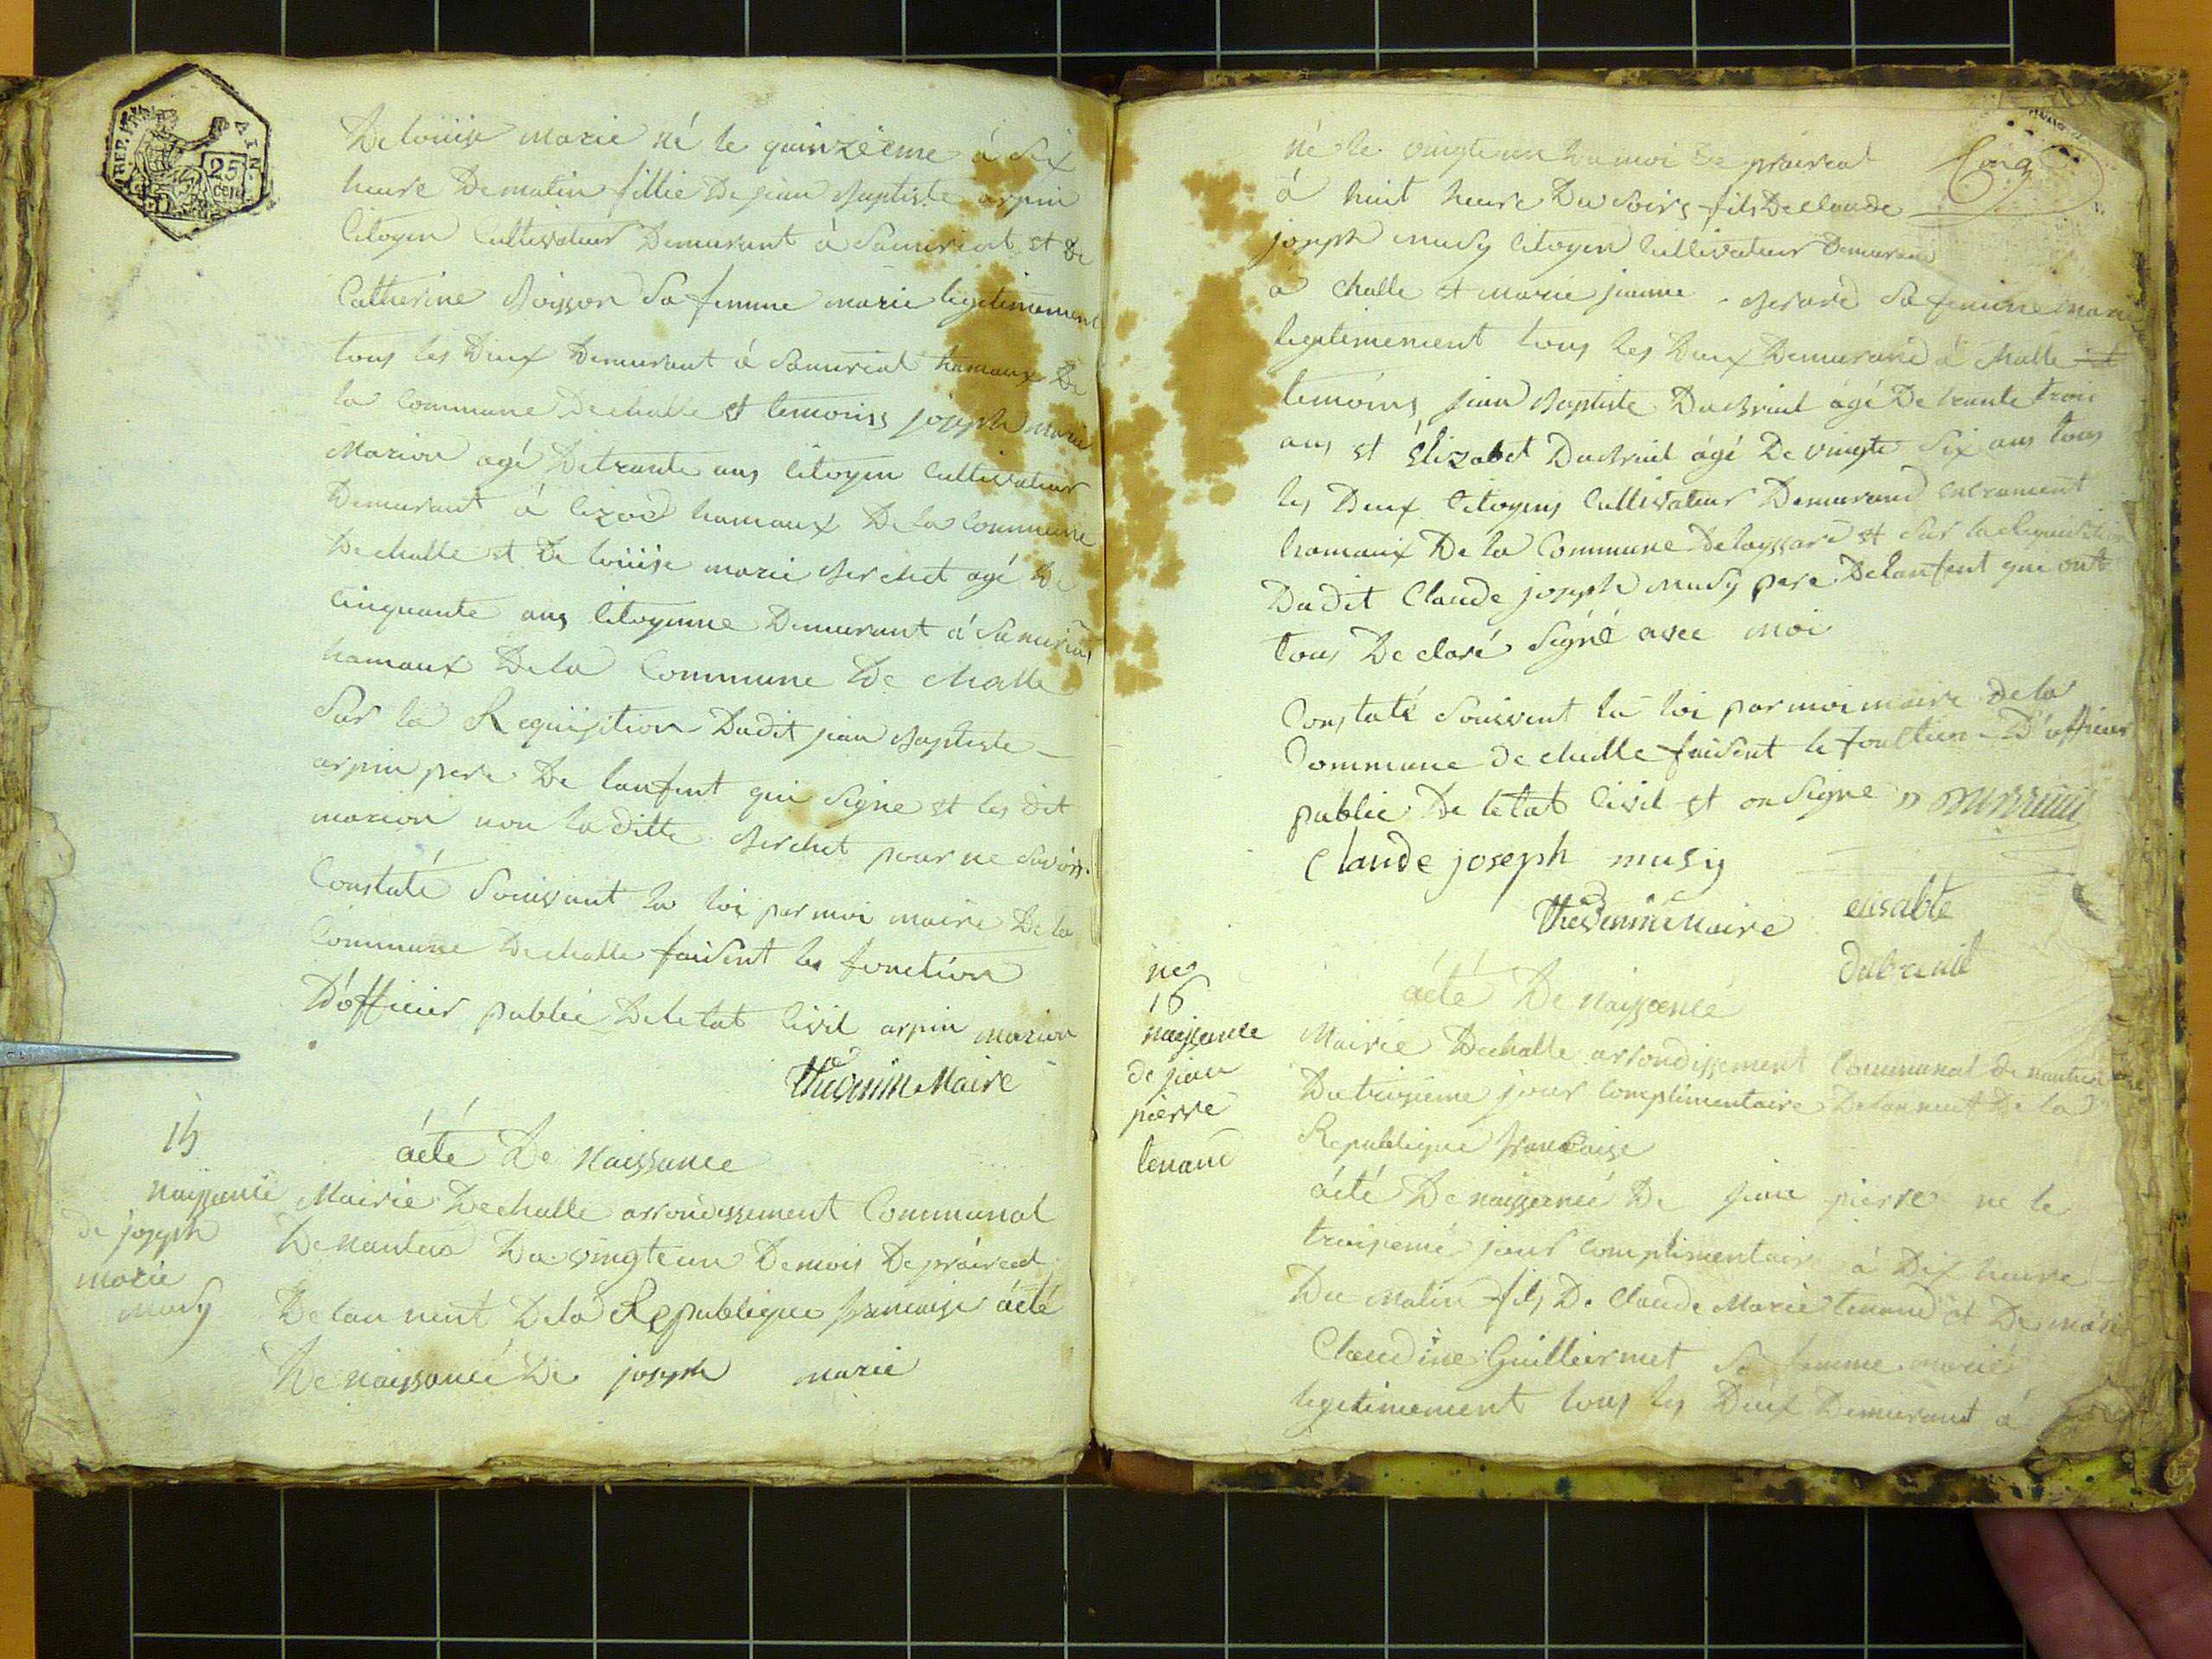 REP. FRA. AIN.
25
cen
De loüise marie né le quinzéeme á Six
heure De matin fillie De jean Baptiste arpin
Citoyen Cultivateur Demurant á Samiriat et De
Catherine Boisson Sa femme marie legitimement
tous les Deux Demurant á Samiriat hamaux De
la Commune De challe et temoins joseph marie
Marion agé De trante ans Citoyen Cultivateur
Demurant á lizod hamaux De la Commune
De challe et De loüise marie Berchet agé De
Cinquante ans Citoyenne Demurant á Samiriat
hamaux De la Commune De challe
Sur la Requisition Dudit jean Baptiste
arpin pere De lanfent qui Signe et les dit
marion non la ditte Berchet pour ne Savoir.
Constaté Souivant la loi par moi maire De la
Commune De challe faisent les fonction
D'officier public De letat Civil arpin marion
Thevenin Maire
15
naissance
de joseph
marie
musy
acte De Naissance
Mairie De challe arrondissement Communal
De nantua Du vingte un De mois De praireal
De lan neut De la Republique francaise acté
De naissance De joseph marie
Cinq
né le vingte un Du moi De praireal
á huit heure Du Soirs fils De Claude
joseph musy Citoyen Cultivateur Demurand
á challe et marie jeanne Berard Sa femme marie
legitimement tous les Deux Demurand á challe et
temoins jean Baptiste Dubriul agé De trante trois
ans et Elizabet Dubriul ágé De vingte Six ans tous
les Deux Citoyens Cultivateur Demurand
hamaux De la Commune De layssard et Sur la Requisition
Dudit Claude joseph musy pere De lanfent que ont
tous Declaré Signé avec moi
Constaté Souivent la loi par moi maire De la
Commune de challe faisent le fonction D'officier
public De letat Civil et on Signe
Claude joseph musiy
Thevenin Maire elisabte
dubreuil
nes
16
naissance
de jean
pierre
tenand
acté De naissance
Mairie De challe arrondissement Communal de nantua
Du troisieme jour Complimentaire De lan neut De la
Republique francaise
acté De naissance De jean pierre ne le
troisiemé jour complimentair á Dix heure
Du matin fils De Claude Marie tenand et De marie
Claudine Guillermet Sa femme marié
legetimement tous les Deux Demurant á